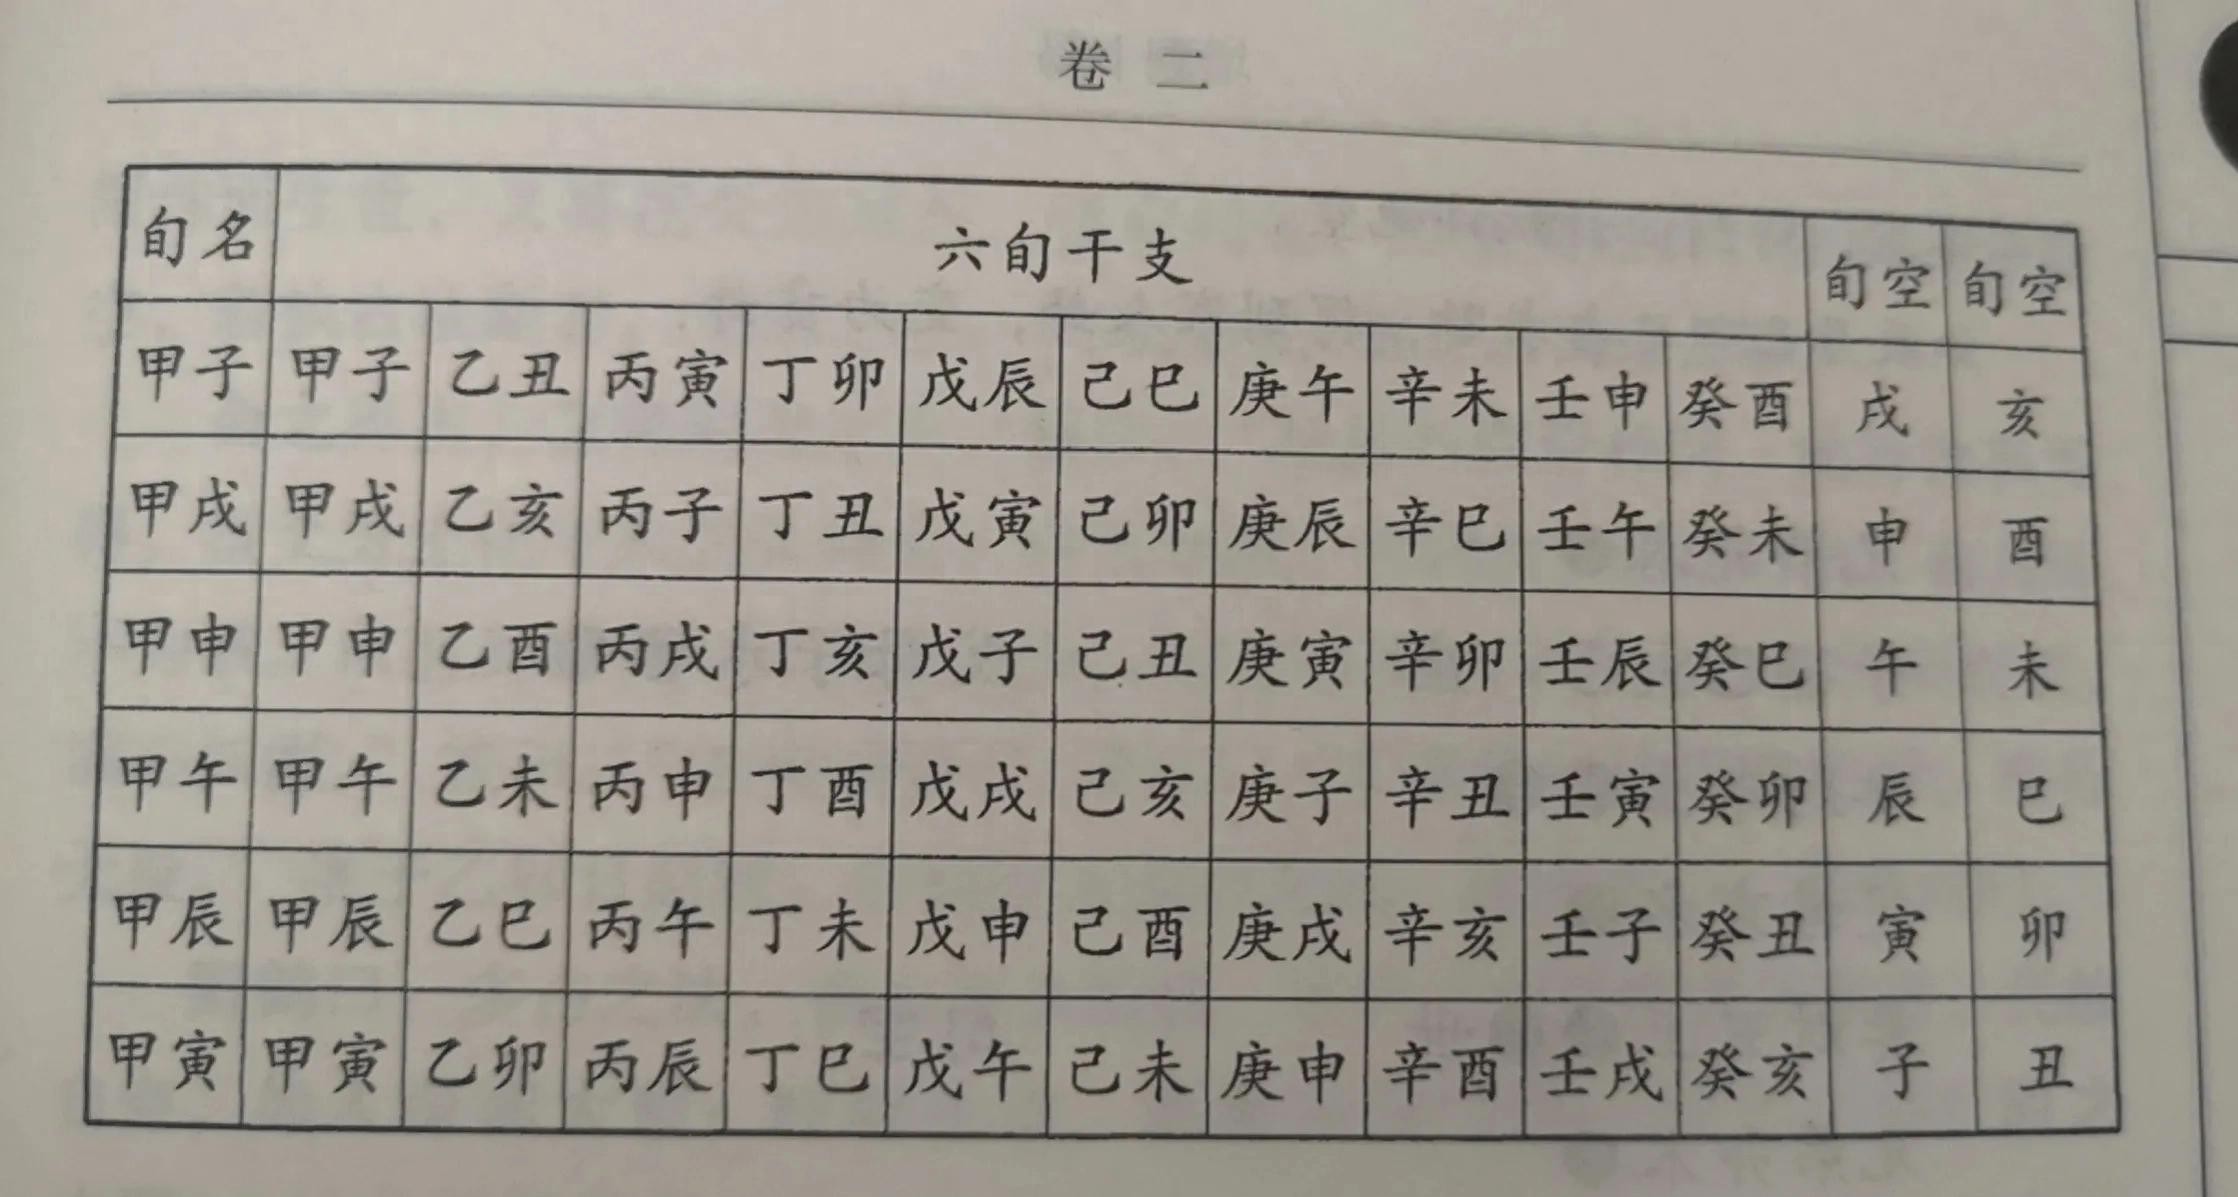 卷 二
旬名 六旬干支 旬空 旬空
甲子 甲子 乙丑 丙寅 丁卯 戊辰 己巳 庚午 辛未 壬申 癸酉 戌 亥
甲戌 甲戌 乙亥 丙子 丁丑 戊寅 己卯 庚辰 辛巳 壬午 癸未 申 酉
甲申 甲申 乙酉 丙戌 丁亥 戊子 己丑 庚寅 辛卯 壬辰 癸巳 午 未
甲午 甲午 乙未 丙申 丁酉 戊戌 己亥 庚子 辛丑 壬寅 癸卯 辰 巳
甲辰 甲辰 乙巳 丙午 丁未 戊申 己酉 庚戌 辛亥 壬子 癸丑 寅 卯
甲寅 甲寅 乙卯 丙辰 丁巳 戊午 己未 庚申 辛酉 壬戌 癸亥 子 丑